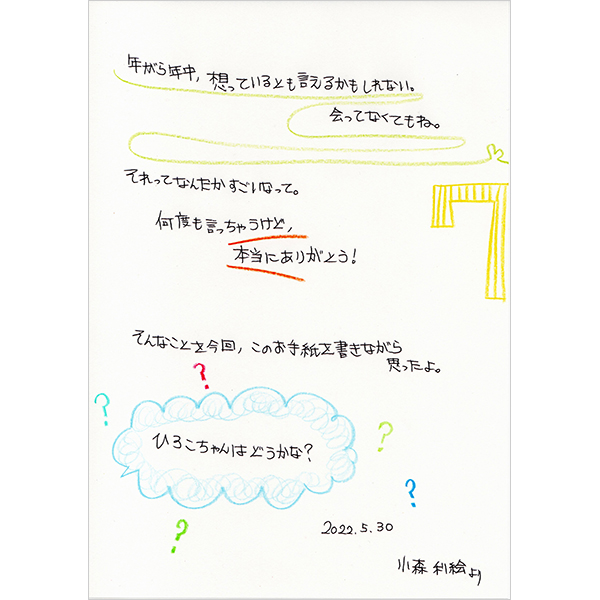 年がら年中、想っているとも言えるかもしれない。
会ってなくてもね。
それってなんだかすごいなって。
何度も言っちゃうけど、
本当にありがとう!
そんなことを今回、このお手紙を書きながら
思ったよ。
?
?
ひろこちゃんはどうかな?
?
?
?
2022.5.30
小森利絵より